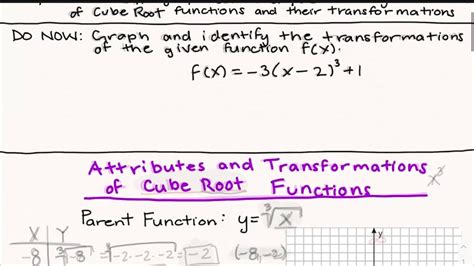 of Cube Root functions and their transformations
DO NOW: Graph and identify the transformations
of the given function f(x).
f(x) = -3(x-2)³+1
Attributes and Transformations
of Cube Root Functions
x³
Parent Function: y=∛x
X Y
-8 ∛-8 = ∛-2·-2·-2 = -2 (-8,-2)
y